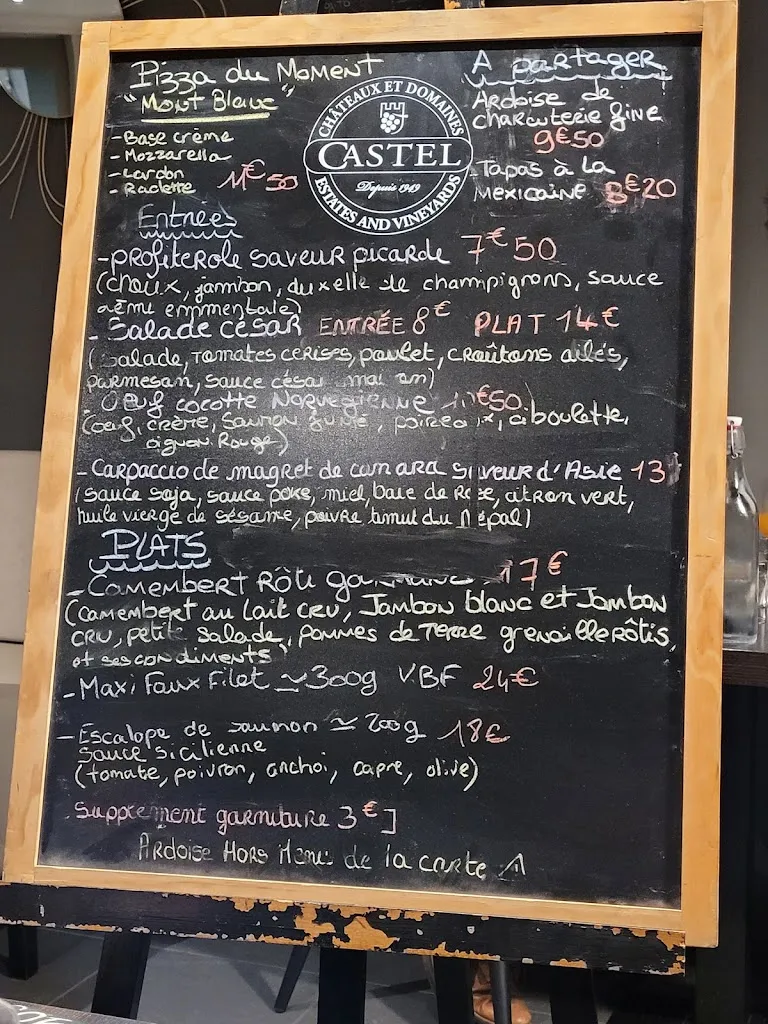 Pizza du Moment
"Mont Blanc"
- Base crème
- Mozzarella
- Lardon
- Raclette 11€50
CHÂTEAUX ET DOMAINES
CASTEL
Depuis 1949
ESTATES AND VINEYARDS
A partager
Ardoise de
charcuterie fine
9€50
- Tapas à la
Mexicaine 8€20
Entrées
- Profiterole saveur picarde 7€50
(choux, jambon, duxelle de champignons, sauce
crème emmentale)
- Salade césar ENTRÉE 8€ PLAT 14€
(salade, tomates cerises, poulet, croûtons ailés,
parmesan, sauce césar)
- Oeuf cocotte Norvégienne €50
(oeuf, crème, saumon fumé, poireaux, ciboulette,
oignon Rouge)
- Carpaccio de magret de canard saveur d'Asie 13
(sauce soja, sauce poke, miel, baie de Rose, citron vert,
huile vierge de sésame, poivre timut du Népal)
PLATS
- Camembert Rôti 17€
(Camembert au lait cru, Jambon blanc et Jambon
cru, petite salade, pommes de Terre grenaille rôtis,
et ses condiments
- Maxi Faux Filet ≃ 300g V.B.F 24€
- Escalope de saumon ≃ 200g 18€
sauce sicilienne
(tomate, poivron, anchoi, capre, olive)
Supplement garniture 3€]
Ardoise Hors Menu de la carte